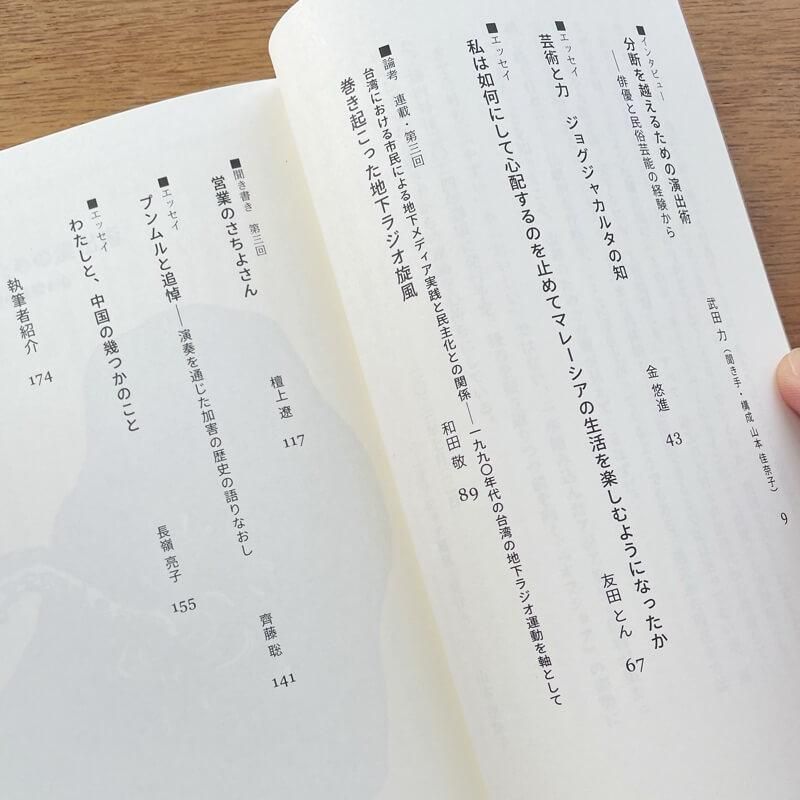 ■インタビュー
分断を越えるための演出術
――俳優と民俗芸能の経験から
武田 力(聞き手・構成 山本 佳奈子)
9
■エッセイ
芸術と力 ジョグジャカルタの知
金 悠進
43
■エッセイ
私は如何にして心配するのを止めてマレーシアの生活を楽しむようになったか
友田 とん
67
■論考 連載・第三回
台湾における市民による地下メディア実践と民主化との関係――一九九〇年代の台湾の地下ラジオ運動を軸として
巻き起こった地下ラジオ旋風
和田 敬
89
■聞き書き 第三回
営業のさちよさん
檀上 遼
117
■エッセイ
プンムルと追悼――演奏を通じた加害の歴史の語りなおし
齊藤 聡
141
■エッセイ
わたしと、中国の幾つかのこと
長嶺 亮子
155
執筆者紹介
174